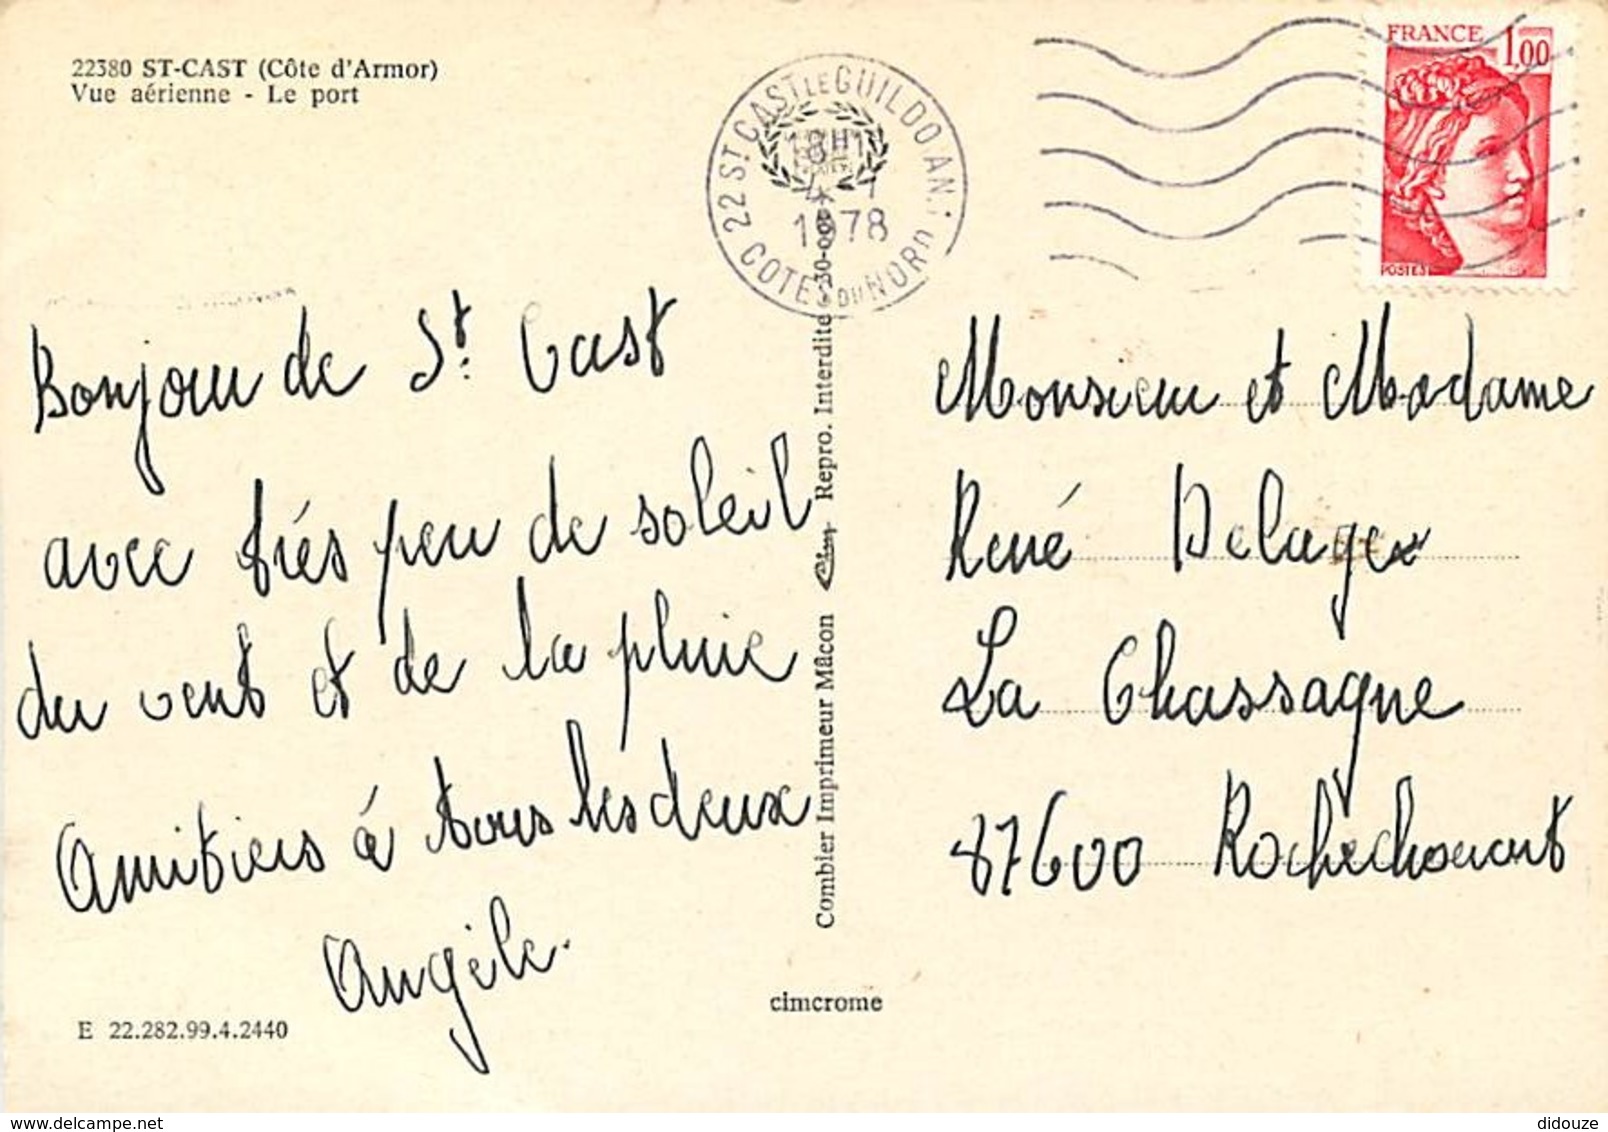 22380 ST-CAST (Côte d'Armor)
Vue aérienne - Le port
22 ST CAST LE GUILDO ANT
COTES DU NORD
18H
1978
FRANCE
1,00
POSTES
Bonjour de St. Cast
avec très peu de soleil
du vent et de la pluie
Amitiers à tous les deux
Angèle.
Monsieur et Madame
René Delagex
La Chassagne
87600 Rochechouart
Combier Imprimeur Mâcon Repro. Interdite
cimcrome
E 22.282.99.4.2440
didouze